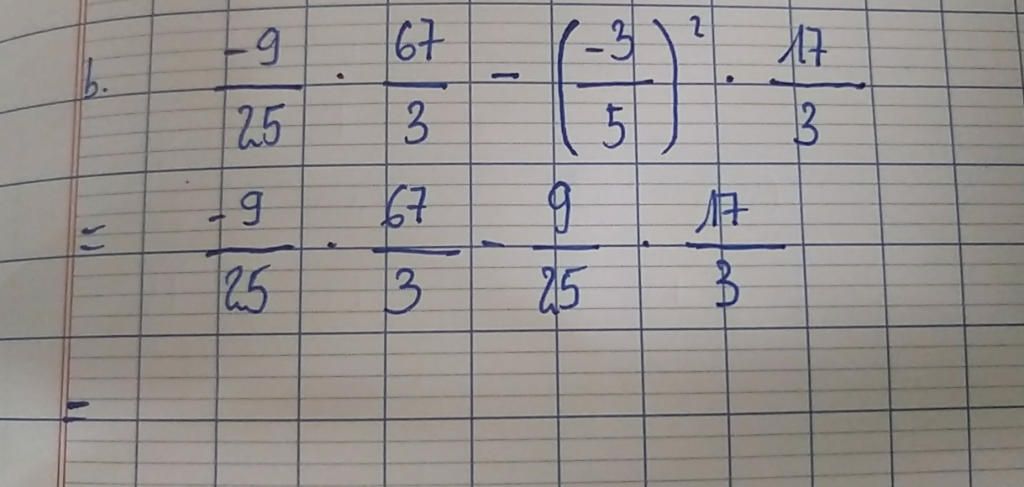 b. \frac{-9}{25} \cdot \frac{67}{3} - \left(\frac{-3}{5}\right)^2 \cdot \frac{17}{3}
= \frac{-9}{25} \cdot \frac{67}{3} - \frac{9}{25} \cdot \frac{17}{3}
=